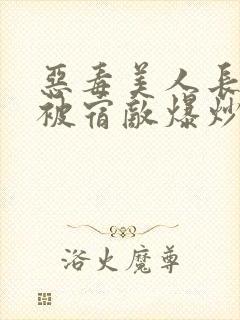 惡毒美人長
被宿敵爆炒
浴火魔尊